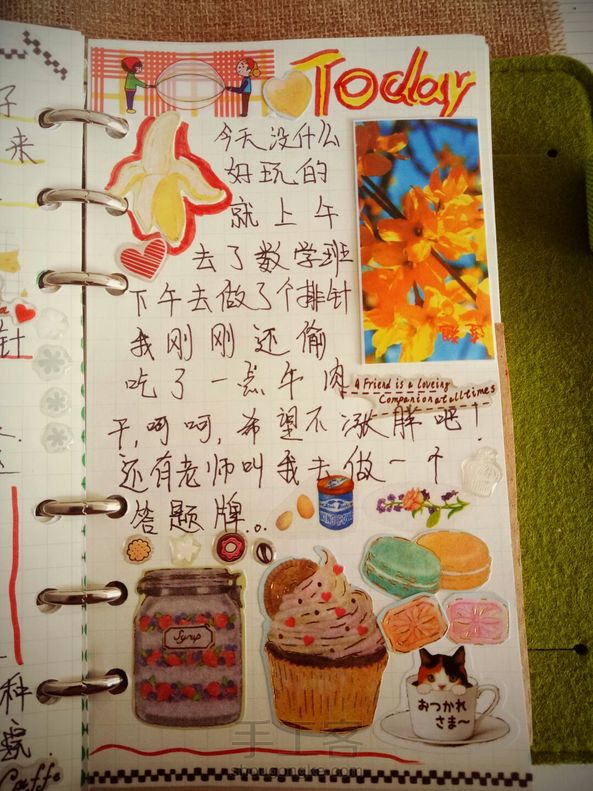 Today
今天没什么
好玩的
就上午
去了数学班
下午去做了个排针
我刚刚还偷
吃了一点牛肉
A Friend is a loveing
Companion at all times
干,呵呵,希望不涨胖吧!
还有老师叫我去做一个
答题牌...
Syrup
おつかれ
さま〜
子
来
针
科
Caffe
手工客
shougongke.com